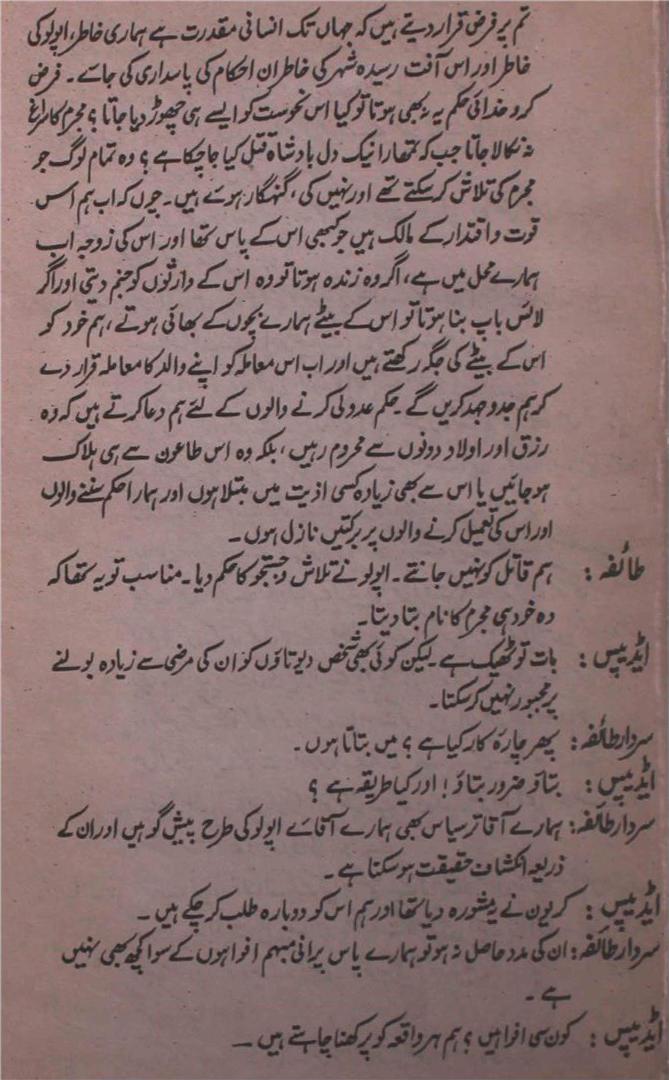 تم پر فرض قرار دیتے ہیں کہ جہاں تک انسانی مقدرت ہے ہماری خاطر، اپولو کی
خاطر اور اس آفت رسیدہ شہر کی خاطر ان احکام کی پاسداری کی جائے۔ فرض
کرو خدائی حکم یہ بھی ہوتا تو کیا اس نحوست کو ایسے ہی چھوڑ دیا جاتا؟ مجرم کا سراغ
نہ نکالا جاتا جب کہ تمھارا نیک دل بادشاہ قتل کیا جا چکا ہے؟ وہ تمام لوگ جو
مجرم کی تلاش کر سکتے تھے اور نہیں کی، گنہگار ہوئے ہیں۔ چوں کہ اب ہم اس
قوت و اقتدار کے مالک ہیں جو کبھی اس کے پاس تھا اور اس کی زوجہ اب
ہمارے محل میں ہے، اگر وہ زندہ ہوتا تو وہ اس کے وارثوں کو جنم دیتی اور اگر
لائس باپ بنا ہوتا تو اس کے بیٹے ہمارے بچوں کے بھائی ہوتے، ہم خود کو
اس کے بیٹے کی جگہ رکھتے ہیں اور اب اس معاملہ کو اپنے والد کا معاملہ قرار دے
کر ہم جدوجہد کریں گے۔ حکم عدولی کرنے والوں کے لئے ہم دعا کرتے ہیں کہ وہ
رزق اور اولاد دونوں سے محروم رہیں، بلکہ وہ اس طاعون سے ہی ہلاک
ہو جائیں یا اس سے بھی زیادہ کسی اذیت میں مبتلا ہوں اور ہمارا حکم سننے والوں
اور اس کی تعمیل کرنے والوں پر برکتیں نازل ہوں۔
طائفہ: ہم قاتل کو نہیں جانتے۔ اپولو نے تلاش و جستجو کا حکم دیا۔ مناسب تو یہ تھا کہ
وہ خود ہی مجرم کا نام بتا دیتا۔
ایڈیپس: بات تو ٹھیک ہے لیکن کوئی بھی شخص دیوتاؤں کو ان کی مرضی سے زیادہ بولنے
پر مجبور نہیں کر سکتا۔
سردار طائفہ: پھر چارہ کار کیا ہے؟ میں بتاتا ہوں۔
ایڈیپس: بتاؤ ضرور بتاؤ! اور کیا طریقہ ہے؟
سردار طائفہ: ہمارے آقا ترسیاس بھی ہمارے آقائے اپولو کی طرح پیش گو ہیں اور ان کے
ذریعہ انکشاف حقیقت ہو سکتا ہے۔
ایڈیپس: کریون نے یہ مشورہ دیا تھا اور ہم اس کو دوبارہ طلب کر چکے ہیں۔
سردار طائفہ: ان کی مدد حاصل نہ ہو تو ہمارے پاس پرانی مبہم افواہوں کے سوا کچھ بھی نہیں
ہے۔
ایڈیپس: کون سی افواہیں؟ ہم ہر واقعہ کو پرکھنا چاہتے ہیں۔